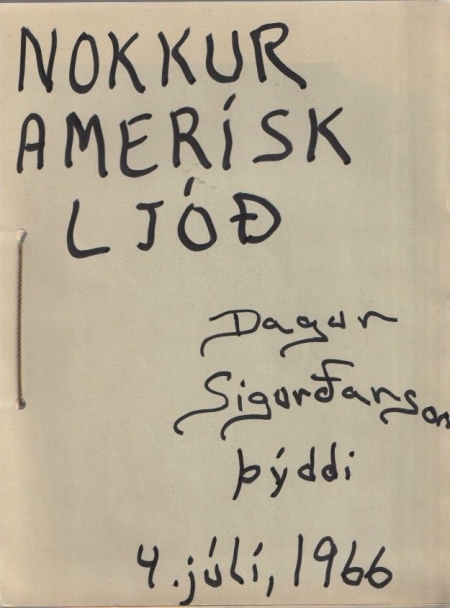 NOKKUR
AMERÍSK
LJÓÐ
Dagur
Sigurðarson
þýddi
4. júlí, 1966